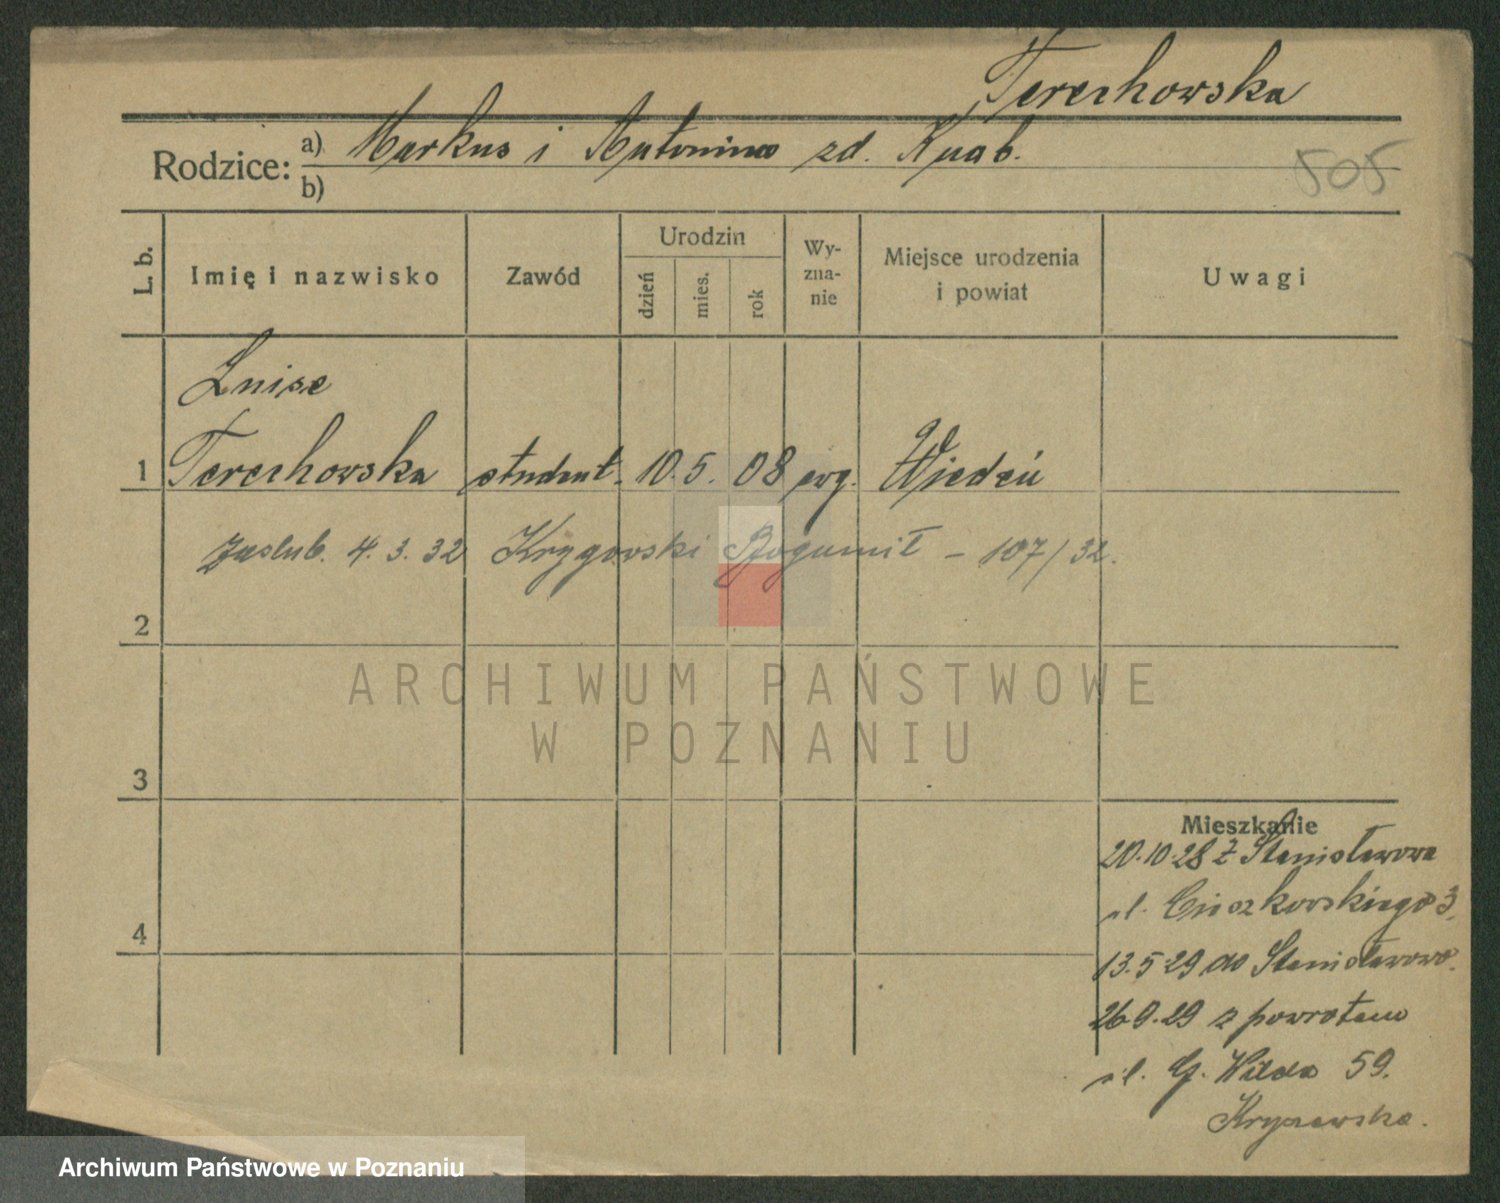 Terechowska
Rodzice: a) Markus i Antonina zd. Knab.
b)
505
L. b. Imię i nazwisko Zawód Urodzin dzień mies. rok Wy-zna-nie Miejsce urodzenia i powiat Uwagi
Luise
1 Terechowska student. 10. 5. 08 ewg. Wiedeń
Zaslub. 4. 3. 32 Krzygowski Bogumił – 107/32.
2
ARCHIWUM PAŃSTWOWE
W POZNANIU
3
Mieszkanie
20.10.28 z Stanisławowa
ul. Cieszkowskiego 3.
4
13.5.29 do Stanisławowa.
26.9.29 z powrotem
ul. G. Wilda 59.
Kryszewska.
Archiwum Państwowe w Poznaniu